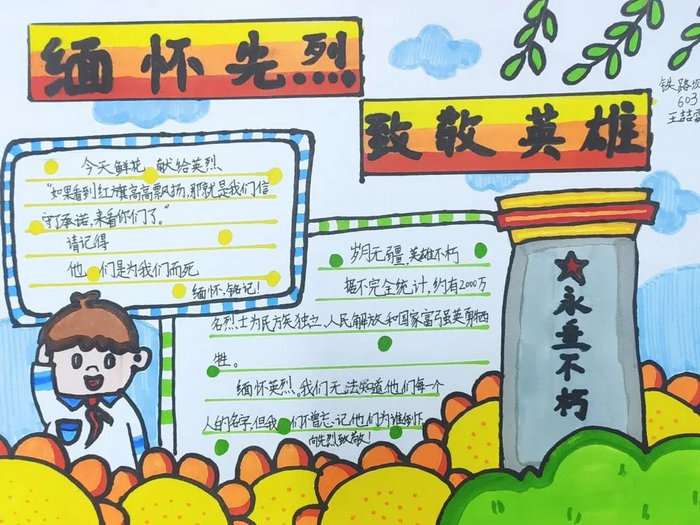 缅怀先烈
致敬英雄
603
今天鲜花 献给英烈
"如果看到红旗高高飘扬,那就是我们信
守承诺,来看你们了。"
请记得
他 们是为我们而死
缅怀.铭记!
岁月无疆,英雄不朽
据不完全统计,约有2000万
名烈士为民族独立、人民解放和国家富强英勇牺
牲。
缅怀英烈,我们无法知道他们每一个
人的名字,但我 们不曾忘记他们为谁
向先烈致敬!
永垂不朽